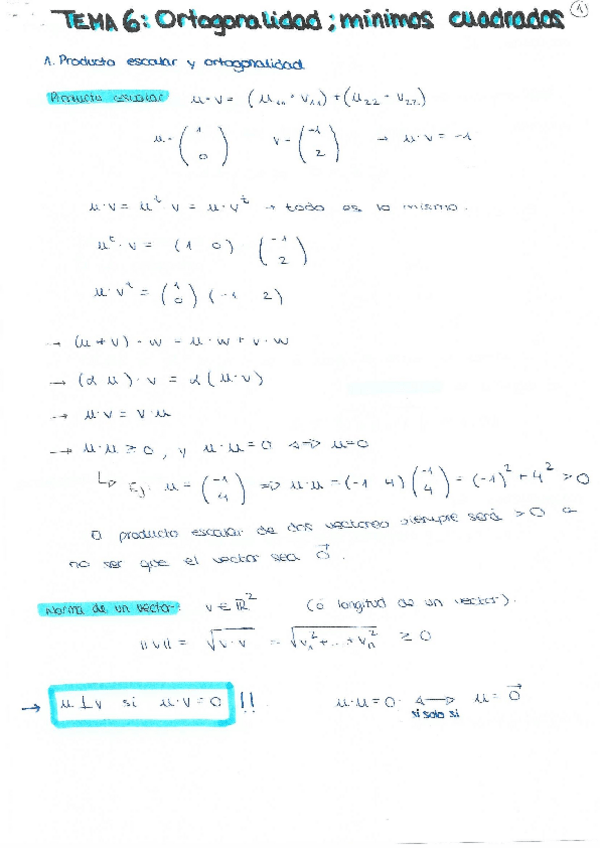 TEMA 6: Ortogonalidad; mínimos cuadrados 1
1. Producto escalar y ortogonalidad
Producto escalar: u · v = (u₁₁ · v₁₁) + (u₂₂ - v₂₂)
u = (1 0) v - (-1 2) → u · v = -1
u · v = uᵗ · v = u · vᵗ → todo es lo mismo.
uᵗ · v = (1 0) · (-1 2)
u · vᵗ = (1 0) (-1 2)
→ (u + v) - w - u · w + v · w
→ (α u) · v = α (u · v)
→ u · v = v · u
→ u · u ≥ 0, y u · u = 0 <=> u = 0
↳ Ej: u = (-1 4) => u · u = (-1 4) (-1 4) = (-1)² + 4² > 0
producto escalar de dos vectores siempre será > 0 a
no ser que el vector sea 0⃗.
Norma de un vector: v ∈ ℝ² (ó longitud de un vector).
||v|| = √v · v = √v₁² + ... + vₙ² ≥ 0
→ u ⊥ v si u · v = 0 !! u · u = 0 <-> u = 0⃗
si solo si